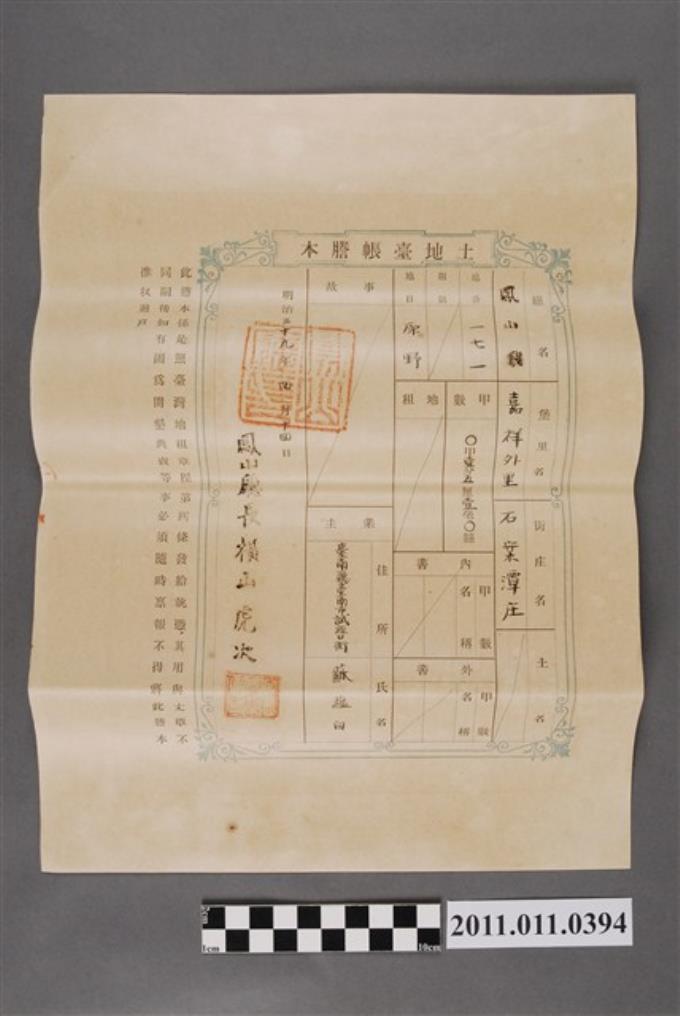 土地臺帳謄本
廳名
鳳山廳
堡里名
嘉祥外里
街庄名
石案潭庄
土名
地番
一七一
等則
地目
原野
甲數
地租
內書
甲數
名稱
外書
甲數
名稱
事故
業主
住所
氏名
蘇
明治三十九年四月十四日
鳳山廳長橫山虎次
此謄本係是照臺灣地租章程第
條發給執憑其用與丈單不
同嗣後如有因為開墾典賣等事必須隨時稟報不得將此謄本
推收過戶
2011.011.0394
1cm
10cm